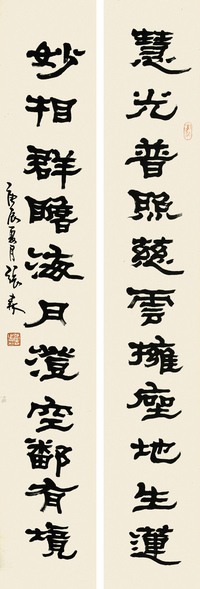 慧光普照慈雲擁座地生蓮
妙相群瞻海月澄空有境
庚辰夏月張森